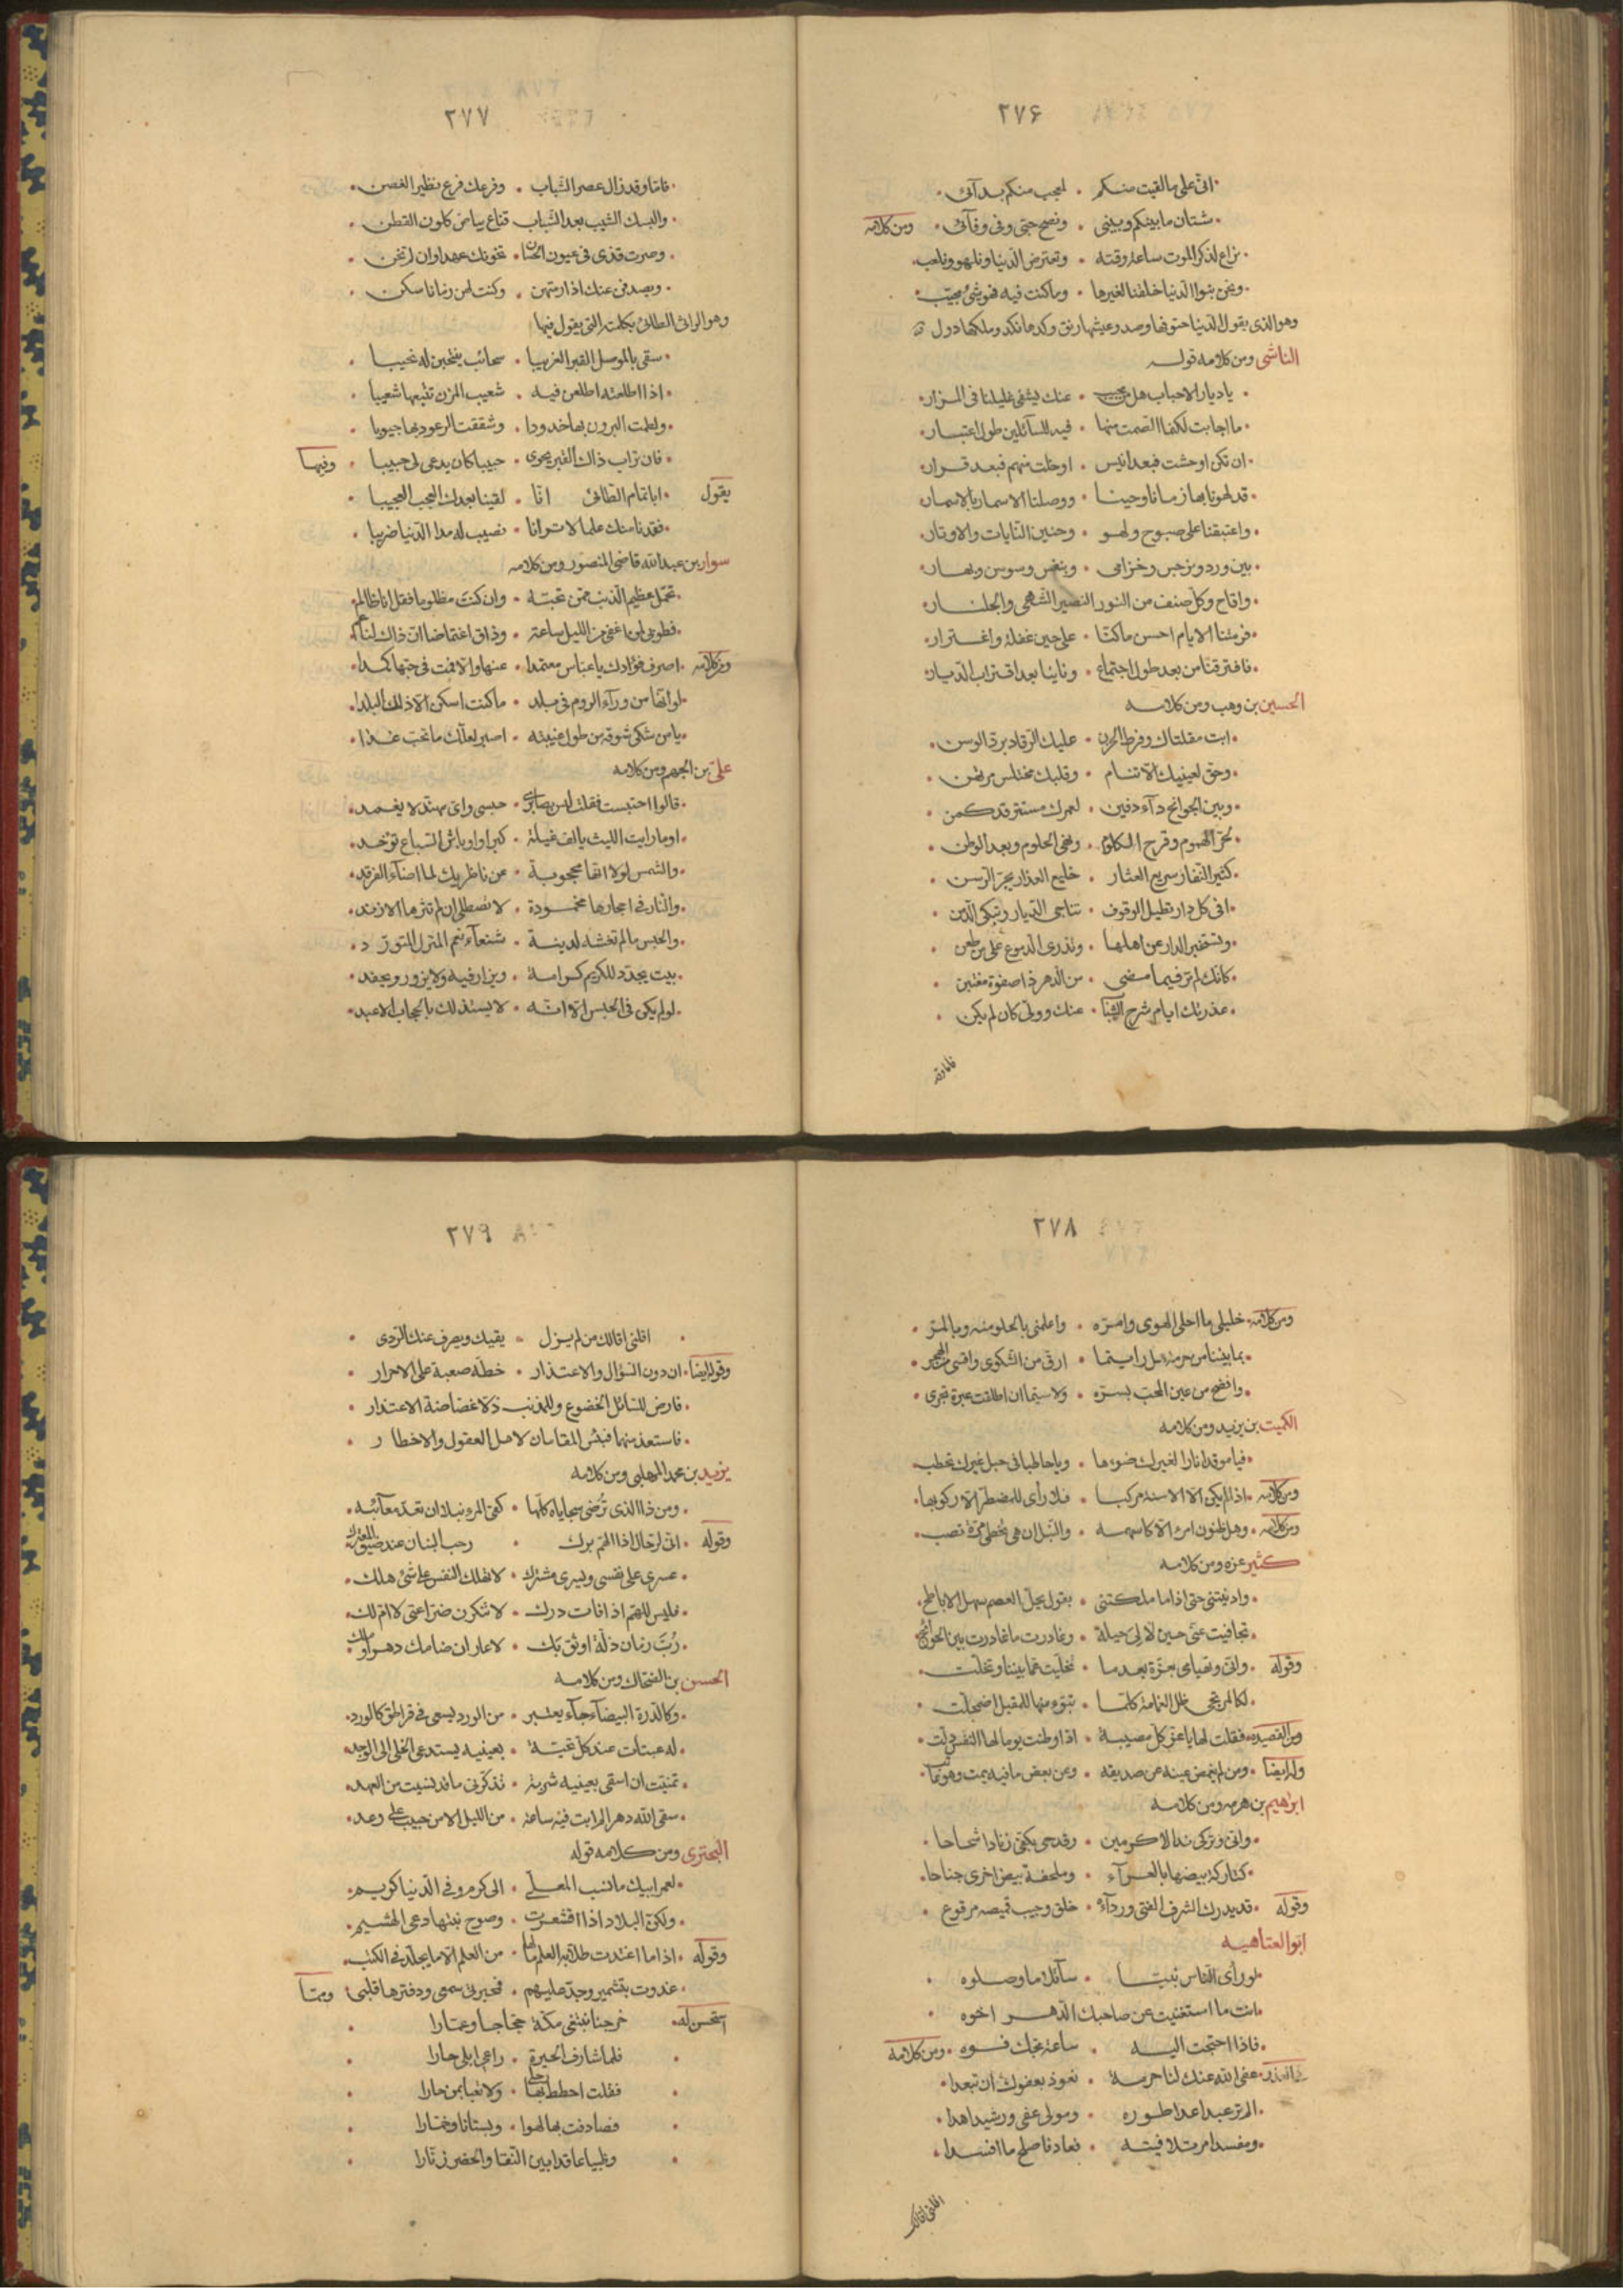 ٢٧۶
انى على ما لقيت منكم . لمعجب منكم بدآئى
شتان ما بينكم وبينى . ونصح حبى وفى وفآئى . ومن كلامه
نراع لذكر الموت ساعة وقته . وتعترض الدنيا ونلهو ونلعب
ونحن بنوا الدنيا خلقنا لغيرها . وما كنت فيه فهو شئ محبّب
وهو الذى يقول الدنيا حتوفها رصد وعيشها رنق وكدها نكد وملكها دول
الناشى ومن كلامه قوله
يا ديار الاحباب هل من مجيب . عنك يشفى غليلنا فى المزار
ما اجابت لكنما الصمت منها . فيه للسآئلين طول اعتبار
ان تكن اوحشت فبعد انيس . او خلت منهم فبعد قرار
قد لهونا بها زمانا وحينا . ووصلنا الاسمار بالاسمار
واغتبقنا على صبوح ولهو . وحنين النايات والاوتار
بين ورد ونرجس وخزامى . وبنفس وسوسن وبهار
واقاح وكل صنف من النور النضير الشهى والجلنار
فرمتنا الايام احسن ماكنّا . على حين غفلة واغترار
فافترقنا من بعد طول اجتماع . ونأينا بعد اقتراب الديار
الحسين بن وهب ومن كلامه
ابت مقلتاك وفرط الحزن . عليك الرقاد برد الوسن
وحق لعينيك الا تنام . وقلبك مختلس مرتهن
وبين الجوانح دآء دفين . لعمرك مستتر قد كمن
لحر الهموم وقرح الكلوم . ونفى الحلوم وبعد الوطن
كثير النفار سريع العثار . خليع العذار يجر الرسن
افى كل دار تطيل الوقوف . تناجى الديار وتبكى الدمن
وتستخبر الدار عن اهلها . وتذرى الدموع على من ظعن
كانك لم تر فيما مضى . من الدهر ذا صفوة مفتتن
عذرتك ايام شرخ الشباب . عنك وولى كان لم يكن
فاما وقد
٢٧٧
فاما وقد زال عصر الشباب . وفرعك فرع نظير الغصن
والبسك الشيب بعد الشباب قناع بياض كلون القطن
وصرت قذى فى عيون الحسان . تخونك عهدا وان لم تخن
ويصدفن عنك اذا رمتهن . وكنت لهن زمانا سكن
وهو الراثى الطائى بكلمته التى يقول فيها
سقى بالموصل القبر الغريبا . سحائب ينتحبن له نحيبا
اذا اطلعنه اطلعن فيه . شعيب المزن تتبعها شعيبا
ولطمت البروق بها خدودا . وشققت الرعود بها جيوبا
فان تراب ذاك القبر يحوى . حبيبا كان يدعى لى حبيبا . وفيها
يقول . ابا تمام الطائى انّا . لقينا بعدك العجب العجيبا
فقدنا منك علما لا ترانا . نصيب له مدا الدنيا ضريبا
سوار بن عبد الله قاضى المنصور ومن كلامه
تحمّل عظيم الذنب ممن تحبّه . وان كنت مظلوما فقل انا ظالم
فطوبى لمن اغفى من الليل ساعة . وذاق اغتماضا ان ذاك لناعم
ومن كلامه . اصرف فؤادك يا عباس معتمدا . عنها والا فمت فى حبها كمدا
لو انها من ورآء الروم فى بلد . ما كنت اسكن الا ذلك البلدا
يا من شكى شوقه من طول غيبته . اصبر لعلك ما تحب غدا
على بن الجهم ومن كلامه
قالوا احتبست فقلت ليس بضائرى . حبسى واى مهند لا يغمد
اوما رايت الليث يالف غيلة . كبرا واوباش السباع تؤخد
والشمس لولا انها محجوبة . عن ناظريك لما اضآء الفرقد
والنار فى احجارها مخمودة . لا تصطلى ان لم تثرها الازند
والحبس ما لم تغشه لدنية . شنعآء نعم المنزل المتورّد
بيت يجدد للكريم كرامة . ويزار فيه ولا يزور ويحفد
لو لم يكن فى الحبس الا انه . لا يستذلك بالحجاب الاعبد
٢٧٨
ومن كلامه . خليلى ما احلى الهوى وامرّه . واعلمنى بالحلو منه وبالمر
بما بيننا من حرمة هل رايتما . ارق من الشكوى واقسى من الهجر
وافضح من عين المحب بسرّه . ولا سيما ان اطلقت عبرة تجرى
الكميت بن يزيد ومن كلامه
فيا موقدا نارا لغيرك ضوءها . ويا حاطبا فى حبل غيرك تحطب
ومن كلامه . اذا لم يكن الا الاسنة مركبا . فلا رأى للمضطر الا ركوبها
ومن كلامه . وهل ظنون امرء الا كاسهمه . والنبل ان هى تخطى مرّة تصب
كثير عزه ومن كلامه
وادنيتنى حتى اذا ما ملكتنى . بقول يحل العصم سهل الاباطح
تجافيت عنى حين لا لى حيلة . وغادرت ما غادرت بين الجوانح
وقوله . وانى وتهيامى بعزّة بعدما . تخليت مما بيننا وتخلت
لكالمرتجى ظل الغمامة كلما . تبوء منها للمقيل اضمحلّت
ومن القصيده . فقلت لها يا عز كل مصيبة . اذا وطنت يوما لها النفس ذلت
وله ايضا . ومن لم يغمض عينه عن صديقه . وعن بعض ما فيه يمت وهو عاتب
ابراهيم بن هرمه ومن كلامه
وانى وتركى ندا الاكرمين . وقدحى بكفى زنادا شحاحا
كتاركة بيضها بالعرآء . وملحفة بيض اخرى جناحا
وقوله . قد يدرك الشرف الفتى وردآؤه . خلق وجيب قميصه مرقوع
ابو العتاهيه
لو رأى الناس نبيّا . سآئلا ما وصلوه
انت ما استغنيت عن صاحبك الدهر اخوه
فاذا احتجت اليه . ساعة مجك فوه . ومن كلامه
عفى الله عنك لنا حرمة . نعوذ بعفوك ان تبعدا
الم تر عبدا عدا طوره . ومولى عفى ورشيدا هدا
ومفسد امر تلافيته . فعاد فاصلح ما افسدا
اقلنى اقالك
٢٧٩
اقلنى اقالك من لم يزل . يقيك ويصرف عنك الردى
وقوله ايضا . ان دون السؤال والاعتذار . خطّة صعبة على الاحرار
فارض للسائل الخضوع وللمذنب ذلا غضاضة الاعتذار
فاستعذ منها فبئس المقامان لاهل العقول والاخطار
يزيد بن محمد المهلبى ومن كلامه
ومن ذا الذى ترضى سجاياه كلها . كفى المرء نبلا ان تعدّ معآئبه
وقوله . انى لرحال اذا الهم برك . رحب اللبان عند ضيق المعترك
عسرى على نفسى ويسرى مشترك . لا تهلك النفس على شئ هلك
فليس للهم اذا فات درك . لا تنكرن ضراعتى لا ام لك
رُبّ زمان ذلّه اوثق بك . لا عار ان ضامك دهر او ملك
الحسن بن الضحاك ومن كلامه
وكالدرة البيضآء جآء بعنبر . من الورد يسعى فى قراطق كالورد
له عبثات عند كل تحيّة . بعينيه يستدعى الخلى الى الوجد
تمنيت ان اسقى بعينيه شربة . تذكرنى ما قد نسيت من العهد
سقى الله دهرا لم ابت فيه ساعة . من الليل الا من حبيب على وعد
البحترى ومن كلامه قوله
لعمر ابيك ما نسب المعلّى . الى كرم وفى الدنيا كريم
ولكن البلاد اذا اقشعرت . وصوح نبتها دعى الهشيم
وقوله . اذا ما اغتدت طلّابة العلم مالها . من العلم الا ما يجلّد فى الكتب
غدوت بتشمير وجدّ عليهم . فمحبرتى سمعى ودفترها قلبى . ومما
استحسن له . خرجنا نبتغى مكة حجّاجا وعمّارا
فلما شارف الحيرة . راعى ابلى حارا
فقلت احطط بها رحلى . ولا تعبا بمن حارا
فصادفت بها لهوا . وبستانا وخمّارا
وظبيا عاقدا بين النقا والخصر زنّارا